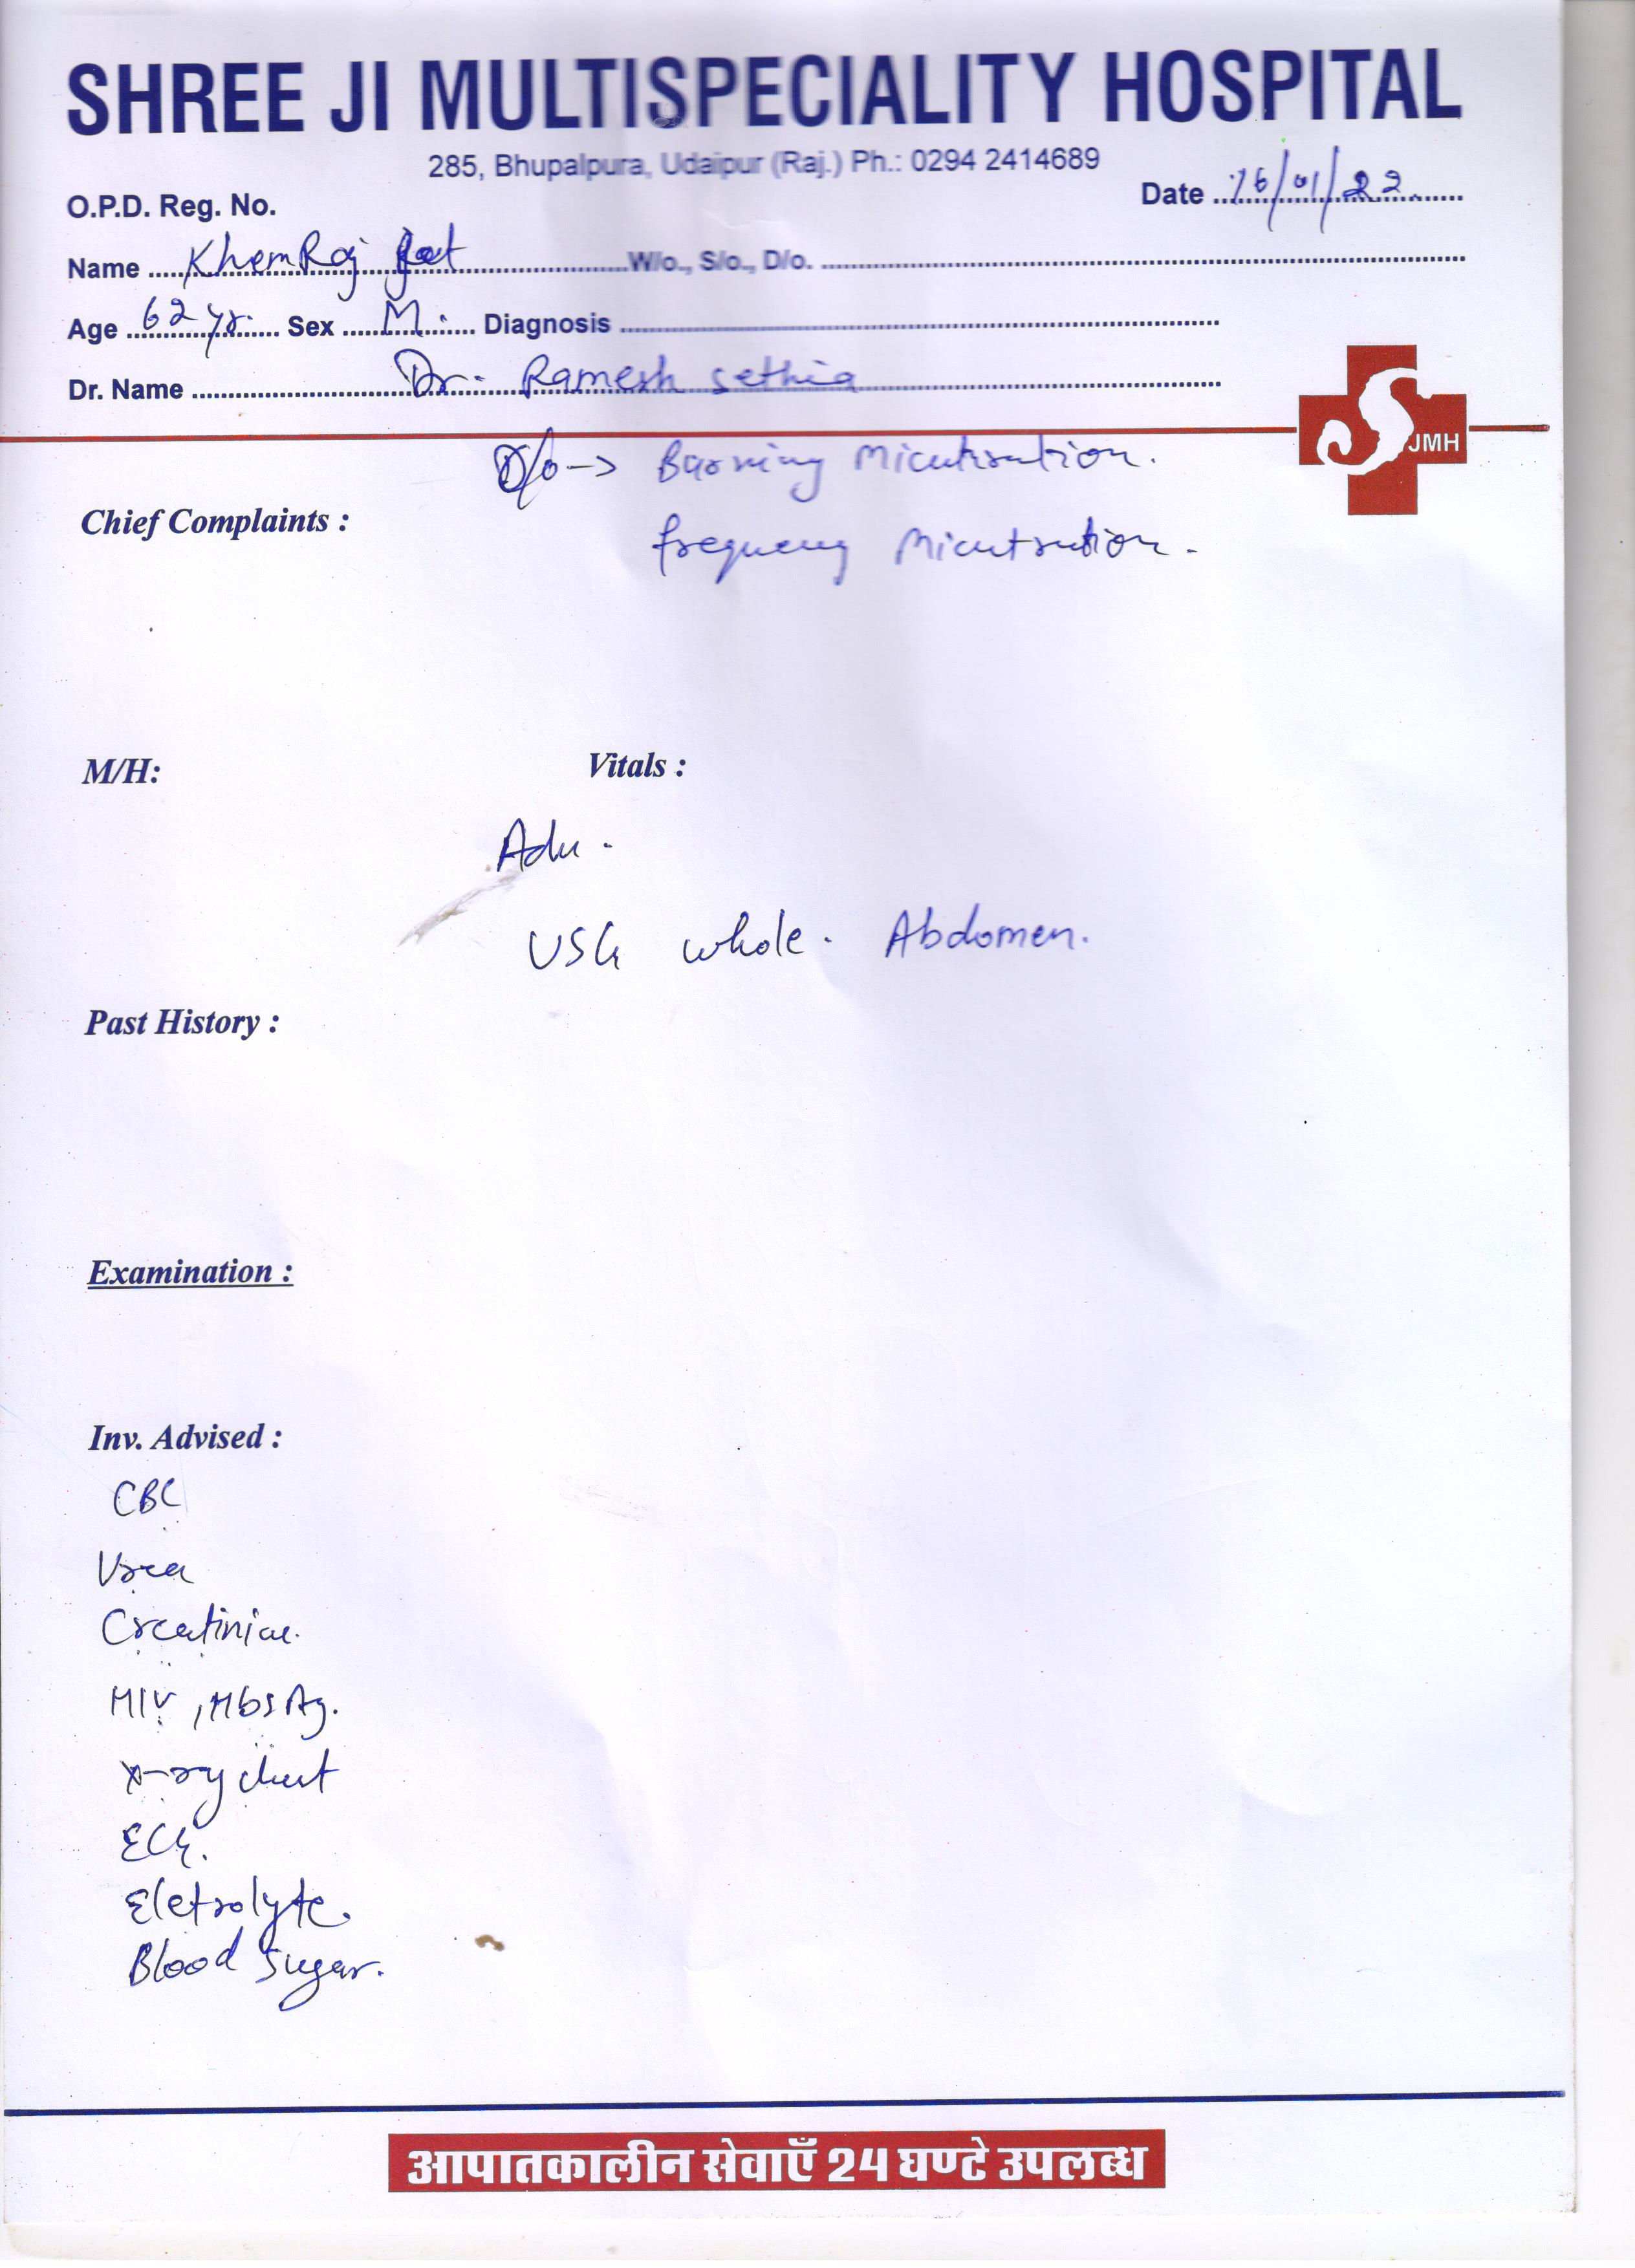 SHREE JI MULTISPECIALITY HOSPITAL
285, Bhupalpura, Udaipur (Raj.) Ph.: 0294 2414689
O.P.D. Reg. No.
Date 16/01/22
Name KhemRaj W/o., S/o., D/o.
Age 62 yr. Sex M. Diagnosis
Dr. Name Dr. Ramesh Sethia
JMH
Burning Micutration.
Chief Complaints :
frequency Micutration.
M/H: Vitals :
Adv.
USG whole. Abdomen.
Past History :
Examination :
Inv. Advised :
CBC
Urea
Creatinine.
HIV, HbsAg.
X-ray chest
ECG.
Eletrolyte.
Blood Sugar.
आपातकालीन सेवाएँ 24 घण्टे उपलब्ध